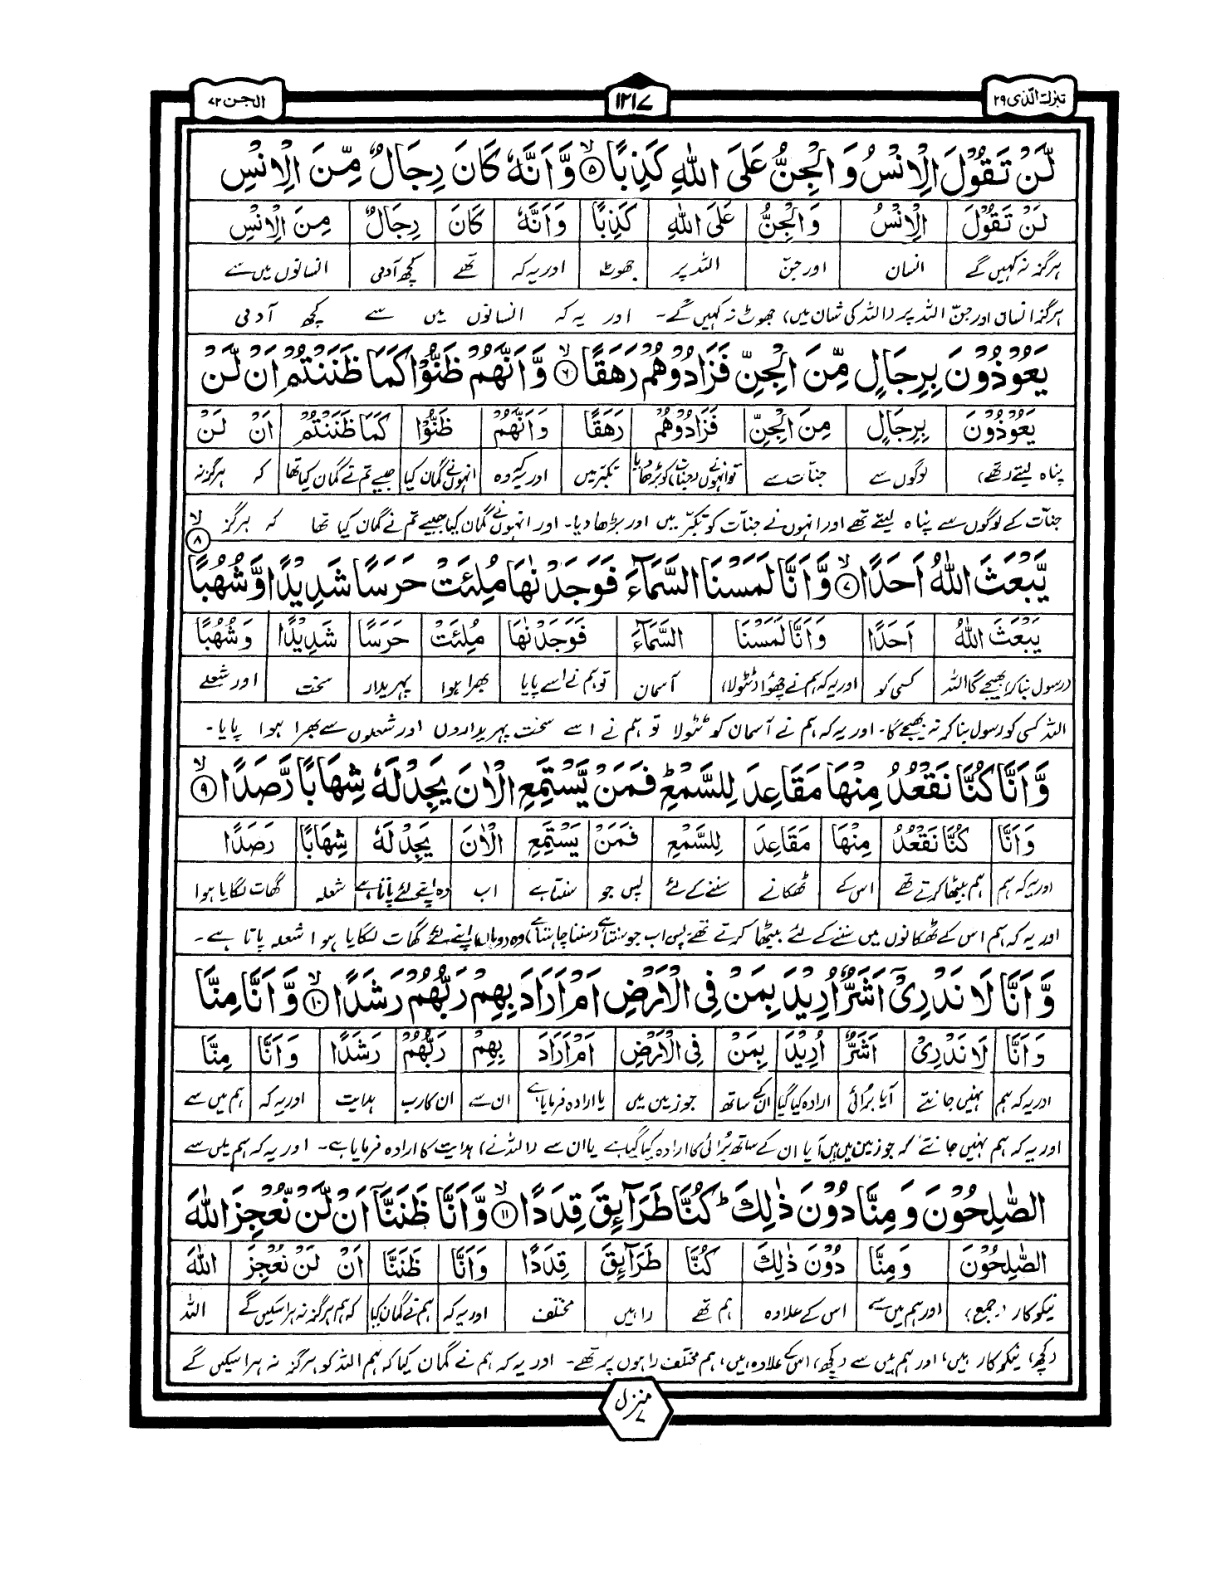 تبٰرك الّذی ۲۹
۱۲۱۷
الجن ۷۲
لَّنْ تَقُوْلَ الْاِنْسُ وَ الْجِنُّ عَلَى اللّٰهِ كَذِبًا ۵ وَّاَنَّهٗ كَانَ رِجَالٌ مِّنَ الْاِنْسِ
لَنْ تَقُوْلَ الْاِنْسُ وَالْجِنُّ عَلَى اللّٰهِ كَذِبًا وَاَنَّهٗ كَانَ رِجَالٌ مِنَ الْاِنْسِ
ہرگز نہ کہیں گے انسان اور جنّ اللہ پر جھوٹ اور یہ کہ تھے کچھ آدمی انسانوں میں سے
ہرگز انسان اور جنّ اللہ پر (اللہ کی شان میں) جھوٹ نہ کہیں گے۔ اور یہ کہ انسانوں میں سے کچھ آدمی
يَعُوْذُوْنَ بِرِجَالٍ مِّنَ الْجِنِّ فَزَادُوْهُمْ رَهَقًا ۶ وَّاَنَّهُمْ ظَنُّوْا كَمَا ظَنَنْتُمْ اَنْ لَّنْ
يَعُوْذُوْنَ بِرِجَالٍ مِنَ الْجِنِّ فَزَادُوْهُمْ رَهَقًا وَاَنَّهُمْ ظَنُّوْا كَمَا ظَنَنْتُمْ اَنْ لَنْ
پناہ لیتے (تھے) لوگوں سے جنّات سے تو انہوں نے (جنّات) کو بڑھا دیا تکبّر میں اور یہ کہ وہ انہوں نے گمان کیا جیسے تم نے گمان کیا تھا کہ ہرگز نہ
جنّات کے لوگوں سے پناہ لیتے تھے اور انہوں نے جنّات کو تکبّر میں اور بڑھا دیا۔ اور انہوں نے گمان کیا جیسے تم نے گمان کیا تھا کہ ہرگز
يَّبْعَثَ اللّٰهُ اَحَدًا ۷ وَّاَنَّا لَمَسْنَا السَّمَآءَ فَوَجَدْنٰهَا مُلِئَتْ حَرَسًا شَدِيْدًا وَّشُهُبًا ۸
يَبْعَثَ اللّٰهُ اَحَدًا وَاَنَّا لَمَسْنَا السَّمَآءَ فَوَجَدْنٰهَا مُلِئَتْ حَرَسًا شَدِيْدًا وَشُهُبًا
(رسول بنا کر) بھیجے گا اللہ کسی کو اور یہ کہ ہم نے چھوا (ٹٹولا) آسمان تو ہم نے اسے پایا بھرا ہوا پہریدار سخت اور شعلے
اللہ کسی کو رسول بنا کر نہ بھیجے گا۔ اور یہ کہ ہم نے آسمان کو ٹٹولا تو ہم نے اسے سخت پہریداروں اور شعلوں سے بھرا ہوا پایا۔
وَّاَنَّا كُنَّا نَقْعُدُ مِنْهَا مَقَاعِدَ لِلسَّمْعِ فَمَنْ يَّسْتَمِعِ الْاٰنَ يَجِدْ لَهٗ شِهَابًا رَّصَدًا ۹
وَاَنَّا كُنَّا نَقْعُدُ مِنْهَا مَقَاعِدَ لِلسَّمْعِ فَمَنْ يَسْتَمِعِ الْاٰنَ يَجِدْ لَهٗ شِهَابًا رَصَدًا
اور یہ کہ ہم ہم بیٹھا کرتے تھے اس کے ٹھکانے سننے کے لئے پس جو سنتا ہے اب وہ اپنے لئے پاتا ہے شعلہ گھات لگایا ہوا
اور یہ کہ ہم اس کے ٹھکانوں میں سننے کے لئے بیٹھا کرتے تھے، پس اب جو سنتا ہے (سننا چاہتا ہے) وہ (وہاں) اپنے لئے گھات لگایا ہوا شعلہ پاتا ہے۔
وَّاَنَّا لَا نَدْرِىْٓ اَشَرٌّ اُرِيْدَ بِمَنْ فِى الْاَرْضِ اَمْ اَرَادَ بِهِمْ رَبُّهُمْ رَشَدًا ۱۰ وَّاَنَّا مِنَّا
وَاَنَّا لَا نَدْرِىْٓ اَشَرٌّ اُرِيْدَ بِمَنْ فِى الْاَرْضِ اَمْ اَرَادَ بِهِمْ رَبُّهُمْ رَشَدًا وَاَنَّا مِنَّا
اور یہ کہ ہم نہیں جانتے آیا برائی ارادہ کیا گیا ان کے ساتھ جو زمین میں یا ارادہ فرمایا ہے ان سے ان کا رب ہدایت اور یہ کہ ہم میں سے
اور یہ کہ ہم نہیں جانتے کہ جو زمین میں ہیں آیا ان کے ساتھ برائی کا ارادہ کیا گیا ہے یا ان سے (اللہ نے) ہدایت کا ارادہ فرمایا ہے۔ اور یہ کہ ہم میں سے
الصّٰلِحُوْنَ وَمِنَّا دُوْنَ ذٰلِكَ ؕ كُنَّا طَرَآئِقَ قِدَدًا ۱۱ وَّاَنَّا ظَنَنَّآ اَنْ لَّنْ نُّعْجِزَ اللّٰهَ
الصّٰلِحُوْنَ وَمِنَّا دُوْنَ ذٰلِكَ كُنَّا طَرَآئِقَ قِدَدًا وَاَنَّا ظَنَنَّا اَنْ لَنْ نُعْجِزَ اللّٰهَ
نیکوکار (جمع) اور ہم میں سے اس کے علاوہ ہم تھے راہیں مختلف اور یہ کہ ہم نے گمان کیا کہ ہم ہرگز نہ ہرا سکیں گے اللہ
(کچھ) نیکوکار ہیں، اور ہم میں سے (کچھ) اس کے علاوہ ہیں، ہم مختلف راہوں پر تھے۔ اور یہ کہ ہم نے گمان کیا کہ ہم اللہ کو ہرگز نہ ہرا سکیں گے
منزل ۷